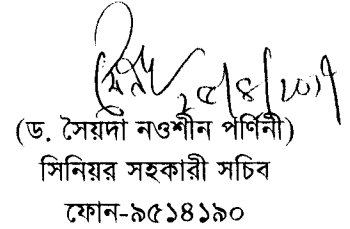 ২৫/৪/২০১৭
(ড. সৈয়দা নওশীন পর্ণিনী)
সিনিয়র সহকারী সচিব
ফোন-৯৫১৪১৯০